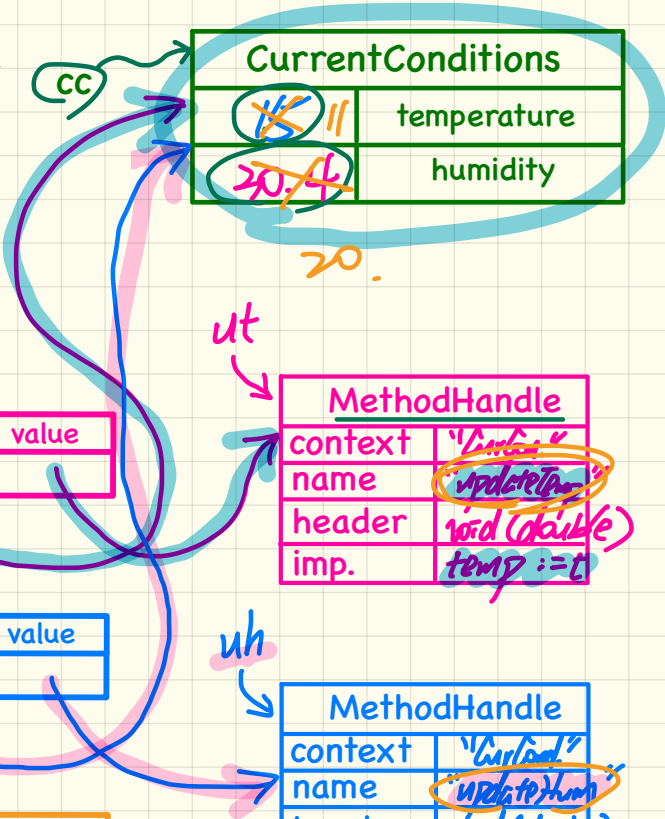 CurrentConditions
cc
15 11 temperature
20.4 humidity
20.
ut
MethodHandle
value
context
name "updateTemp"
header void (double)
imp. temp := t
value
uh
MethodHandle
context "CurCond"
name "updateHum"